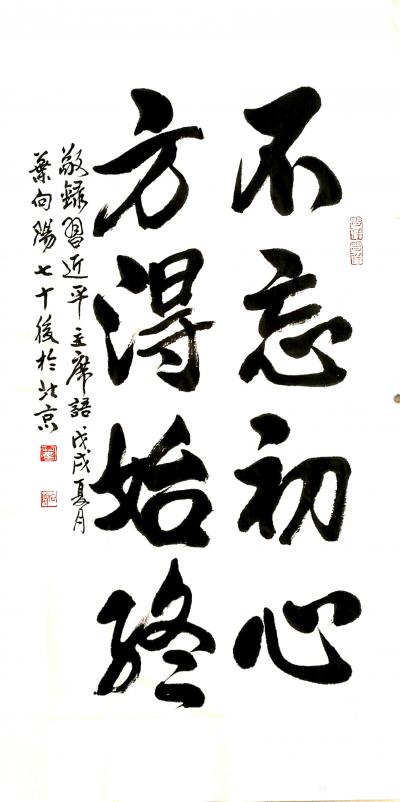 不忘初心
方得始終
敬錄習近平主席語戊戌夏月
葉向陽七十後於北京